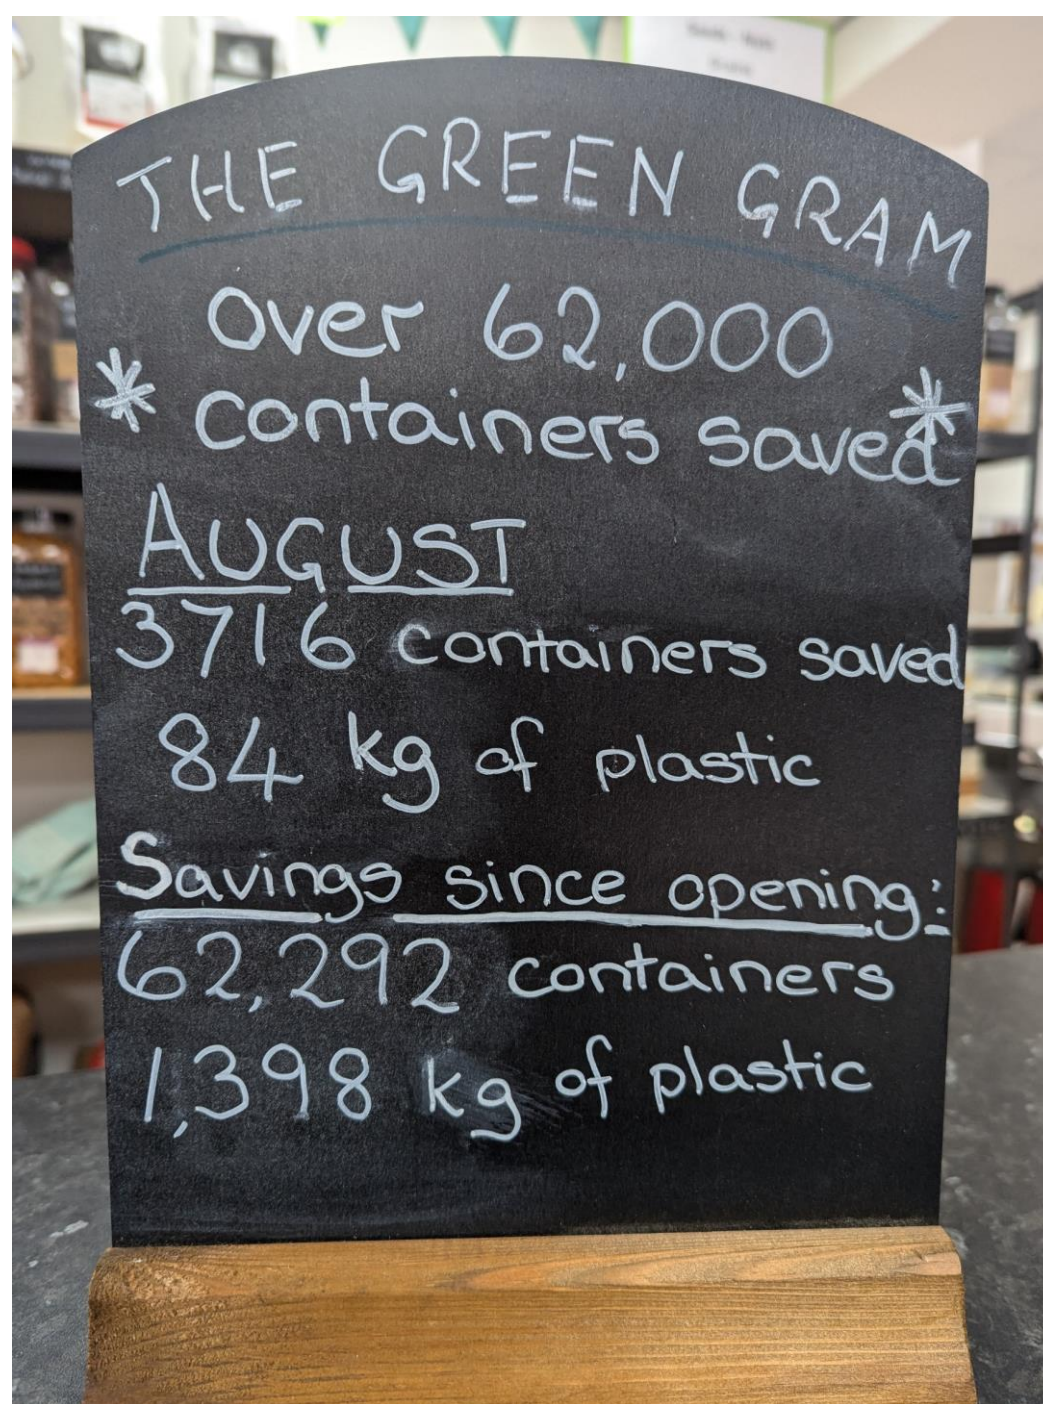 THE GREEN GRAM
Over 62,000
* containers saved *
AUGUST
3716 containers saved
84 kg of plastic
Savings since opening:
62,292 containers
1,398 kg of plastic